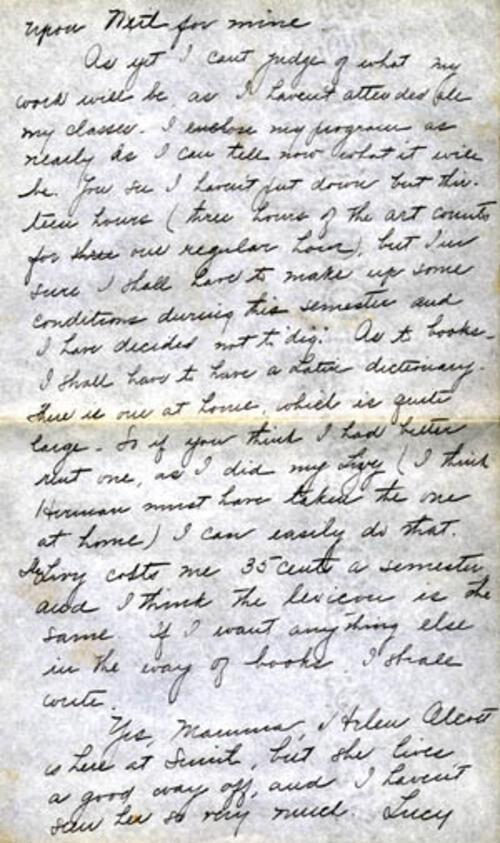 upon Nut for mine
As yet I can't judge of what my
work will be, as I haven't attended all
my classes. I enclose my program as
nearly as I can tell now what it will
be. You see I haven't put down but thir-
teen hours (three hours of the art counts
for three one regular hour), but I'm
sure I shall have to make up some
conditions during this semester and
I have decided not to "dig." As to books -
I shall have to have a Latin dictionary.
There is one at home, which is quite
large. So if you think I had better
rent one, as I did my Livy (I think
Herman must have taken the one
at home) I can easily do that.
Livy costs me 35 cents a semester
and I think the lexicon is the
same. If I want anything else
in the way of books I shall
write.
Yes, Mamma, Helen Alcott
is here at Smith, but she lives
a good way off, and I haven't
saw her so very much. Lucy